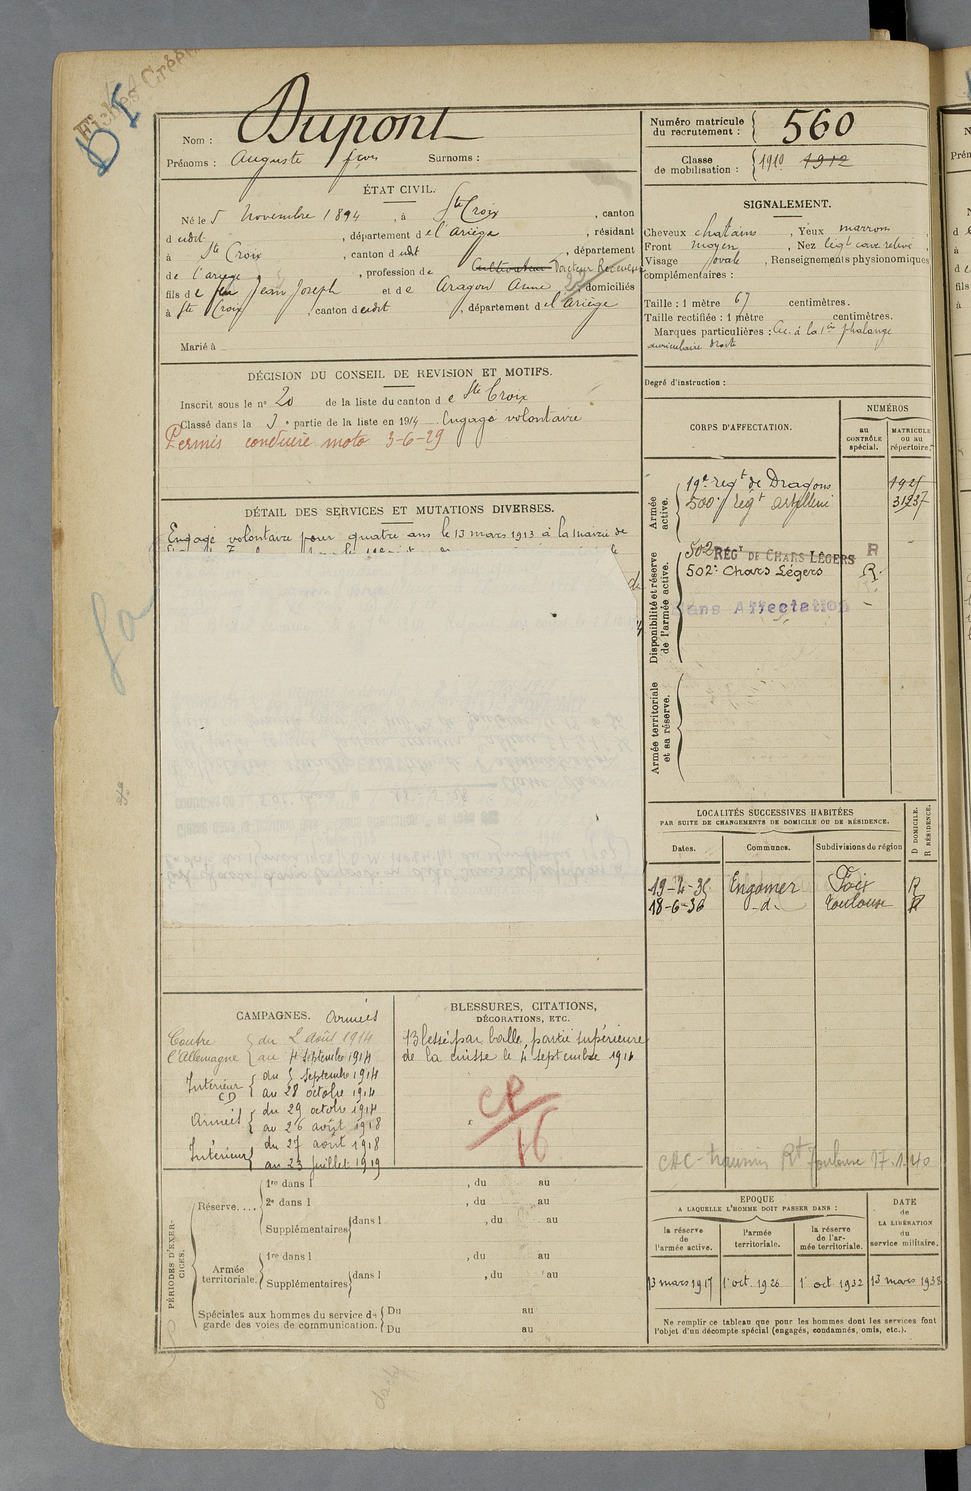 Fiches
DI
Nom : Dupont
Prénoms : Auguste Surnoms :
ÉTAT CIVIL.
Né le 5 Novembre 1894, à Ste Croix, canton
d udit, département de l'Ariège, résidant
à Ste Croix, canton d udit, département
de l'ariege, profession de Cultivateur Facteur Receveur
fils de feu Jean Joseph et de Aragon Anne, domiciliés
à Ste Croix, canton dudit, département de l'Ariège
Marié à
DÉCISION DU CONSEIL DE REVISION ET MOTIFS.
Inscrit sous le n° 20 de la liste du canton de Ste Croix
Classé dans la 3e partie de la liste en 1914 Engagé volontaire
Permis conduire moto 3-6-29
DÉTAIL DES SERVICES ET MUTATIONS DIVERSES.
Engagé volontaire pour quatre ans le 13 mars 1913 à la Mairie de
CAMPAGNES.
Armées
Contre l'Allemagne { du 2 Août 1914
au 4 Septembre 1914
Intérieur CD { du 5 Septembre 1914
au 28 octobre 1914
Armées { du 29 octobre 1914
au 26 août 1918
Intérieur { du 27 août 1918
au 23 juillet 1919
BLESSURES, CITATIONS,
DÉCORATIONS, ETC.
Blessé par balle, partie supérieure
de la cuisse le 4 septembre 1914
CP
16
PÉRIODES D'EXERCICES.
Réserve....
1re dans l , du au
2e dans l , du au
Supplémentaires dans l , du au
Armée territoriale.
1re dans l , du au
Supplémentaires dans l , du au
Spéciales aux hommes du service de garde des voies de communication. Du au
Du au
Numéro matricule du recrutement : 560
Classe de mobilisation : 1910 1912
SIGNALEMENT.
Cheveux chatains, Yeux marrons,
Front moyen, Nez légt cave relevé,
Visage ovale, Renseignements physionomiques
complémentaires :
Taille : 1 mètre 67 centimètres.
Taille rectifiée : 1 mètre centimètres.
Marques particulières : Cic. à la 1ère phalange
auriculaire droite
Degré d'instruction :
CORPS D'AFFECTATION.
NUMÉROS
au CONTRÔLE spécial.
MATRICULE ou au répertoire.
Armée active.
19e regt de Dragons
500e regt artillerie 31237
Disponibilité et réserve de l'armée active.
502 RÉGT DE CHARS LÉGERS R
502e Chars Légers R
Sans Affectation
Armée territoriale et sa réserve.
LOCALITÉS SUCCESSIVES HABITÉES
PAR SUITE DE CHANGEMENTS DE DOMICILE OU DE RÉSIDENCE.
Dates. Communes. Subdivisions de région D DOMICILE. R RÉSIDENCE.
19-2-35 Engomer Foix R
18-6-36 -d- Toulouse R
CAC- Rt Toulouse 17.1.40
EPOQUE
A LAQUELLE L'HOMME DOIT PASSER DANS :
la réserve de l'armée active.
l'armée territoriale.
la réserve de l'armée territoriale.
DATE de LA LIBÉRATION du service militaire.
13 mars 1917 1er oct. 1926 1er oct 1932 13 mars 1938
Ne remplir ce tableau que pour les hommes dont les services font
l'objet d'un décompte spécial (engagés, condamnés, omis, etc.).